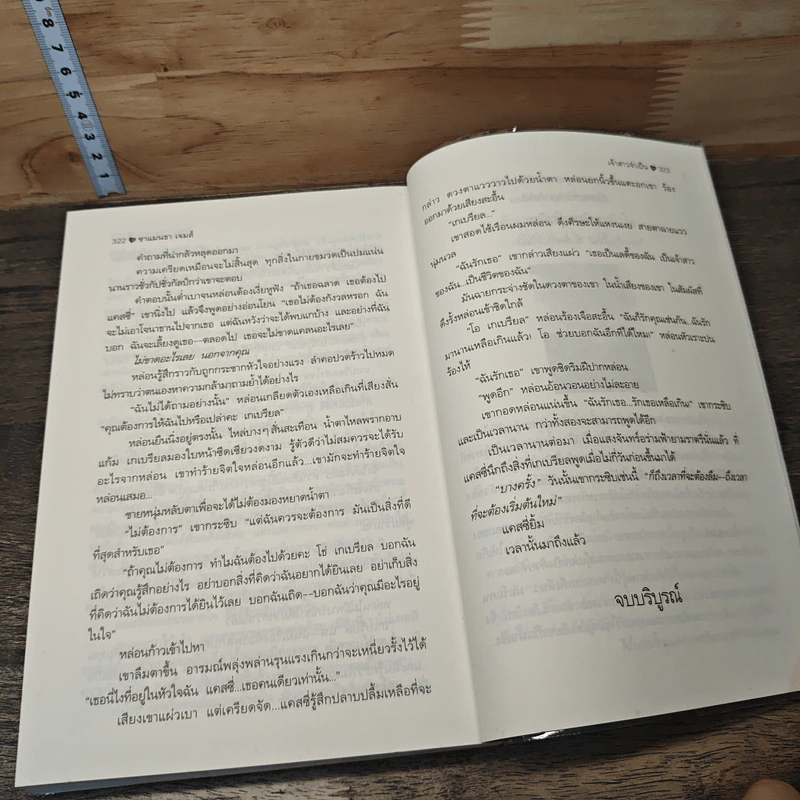 8 7 6 5 4 3 2 1
322 ชาแมนธา เจมส์
คำถามที่น่ากลัวหลุดออกมา
ความเครียดเหมือนจะไม่สิ้นสุด ทุกสิ่งในกายขมวดเป็นปมแน่น
นานราวชั่วกัปชั่วกัลป์กว่าเขาจะตอบ
คำตอบนั้นต่ำเบาจนหล่อนต้องเงี่ยหูฟัง “ถ้าเธอฉลาด เธอต้องไป
แคสซี่” เขานิ่งไป แล้วจึงพูดอย่างอ่อนโยน “เธอไม่ต้องกังวลหรอก ฉัน
จะไม่เอาโจนาธานไปจากเธอ แต่ฉันหวังว่าจะได้พบแกบ้าง และอย่างที่ฉัน
บอก ฉันจะเลี้ยงดูเธอ--ตลอดไป เธอจะไม่ขาดแคลนอะไรเลย”
ไม่ขาดอะไรเลย นอกจากคุณ
หล่อนรู้สึกราวกับถูกกระชากหัวใจอย่างแรง ลำคอปวดร้าวไปหมด
ไม่ทราบว่าตนเองหาความกล้ามาถามย้ำได้อย่างไร
“ฉันไม่ได้ถามอย่างนั้น” หล่อนเกลียดตัวเองเหลือเกินที่เสียงสั่น
“คุณต้องการให้ฉันไปหรือเปล่าคะ เกเบรียล”
หล่อนยืนนิ่งอยู่ตรงนั้น ไหล่บางๆ สั่นสะเทือน น้ำตาไหลพรากอาบ
แก้ม เกเบรียลมองใบหน้าซีดเซียวงดงาม รู้ตัวดีว่าไม่สมควรจะได้รับ
อะไรจากหล่อน เขาทำร้ายจิตใจหล่อนอีกแล้ว...เขามักจะทำร้ายจิตใจ
หล่อนเสมอ...
ชายหนุ่มหลับตาเพื่อจะได้ไม่ต้องมองหยาดน้ำตา
“ไม่ต้องการ” เขากระซิบ “แต่ฉันควรจะต้องการ มันเป็นสิ่งที่ดี
ที่สุดสำหรับเธอ”
“ถ้าคุณไม่ต้องการ ทำไมฉันต้องไปด้วยคะ โธ่ เกเบรียล บอกฉัน
เถิดว่าคุณรู้สึกอย่างไร อย่าบอกสิ่งที่คิดว่าฉันอยากได้ยินเลย อย่าเก็บสิ่ง
ที่คิดว่าฉันไม่ต้องการได้ยินไว้เลย บอกฉันเถิด--บอกฉันว่าคุณมีอะไรอยู่
ในใจ”
หล่อนก้าวเข้าไปหา
เขาลืมตาขึ้น อารมณ์พลุ่งพล่านรุนแรงเกินกว่าจะเหนี่ยวรั้งไว้ได้
“เธอนี่ไงที่อยู่ในหัวใจฉัน แคสซี่...เธอคนเดียวเท่านั้น...”
เสียงเขาแผ่วเบา แต่เครียดจัด...แคสซี่รู้สึกปลาบปลื้มเหลือที่จะ
เจ้าสาวจำเป็น 323
กล่าว ดวงตาแวววาวไปด้วยน้ำตา หล่อนยกนิ้วขึ้นแตะอกเขา ร้อง
ออกมาด้วยเสียงสะอื้น
“เกเบรียล...”
เขาสอดไช้เรือนผมหล่อน ดึงศีรษะให้แหงนเงย สายตาฉายแวว
นุ่มนวล
“ฉันรักเธอ” เขากล่าวเสียงแผ่ว “เธอเป็นเลดี้ของฉัน เป็นเจ้าสาว
ของฉัน..เป็นชีวิตของฉัน”
มันฉายกระจ่างชัดในดวงตาของเขา ในน้ำเสียงของเขา ในสัมผัสที่
ดึงรั้งหล่อนเข้าชิดใกล้
“โอ เกเบรียล” หล่อนร้องเจือสะอื้น “ฉันก็รักคุณเช่นกัน..ฉันรัก
มานานเหลือเกินแล้ว! โอ ช่วยบอกฉันอีกทีได้ไหม!” หล่อนหัวเราะปน
ร้องไห้
“ฉันรักเธอ” เขาพูดชิดริมฝีปากหล่อน
“พูดอีก” หล่อนอ้อนวอนอย่างไม่ละอาย
เขากอดหล่อนแน่นขึ้น “ฉันรักเธอ...รักเธอเหลือเกิน” เขากระซิบ
และเป็นเวลานาน กว่าทั้งสองจะสามารถพูดได้อีก
เป็นเวลานานต่อมา เมื่อแสงจันทร์อร่ามฟ้ายามราตรีนั่นแล้ว ที่
แคสซี่นึกถึงสิ่งที่เกเบรียลพูดเมื่อไม่กี่วันก่อนขึ้นมาได้
“บางครั้ง” วันนั้นเขากระซิบเช่นนี้ “ก็ถึงเวลาที่จะต้องลืม--ถึงเวลา
ที่จะต้องเริ่มต้นใหม่”
แคสซี่ยิ้ม
เวลานั้นมาถึงแล้ว
จบบริบูรณ์